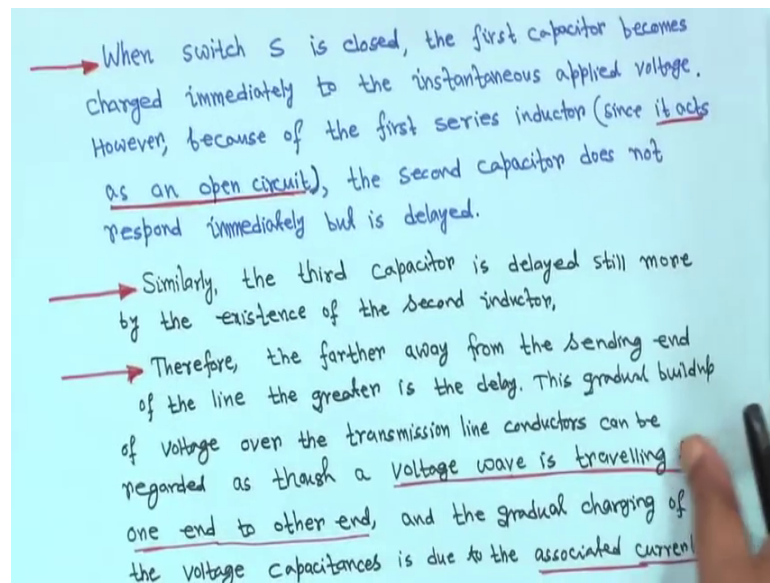 When switch S is closed, the first capacitor becomes
charged immediately to the instantaneous applied voltage.
However, because of the first series inductor (since it acts
as an open circuit), the second capacitor does not
respond immediately but is delayed.
Similarly, the third capacitor is delayed still more
by the existence of the second inductor,
Therefore, the farther away from the sending end
of the line the greater is the delay. This gradual buildup
of voltage over the transmission line conductors can be
regarded as though a voltage wave is travelling
one end to other end, and the gradual charging of
the voltage capacitances is due to the associated current